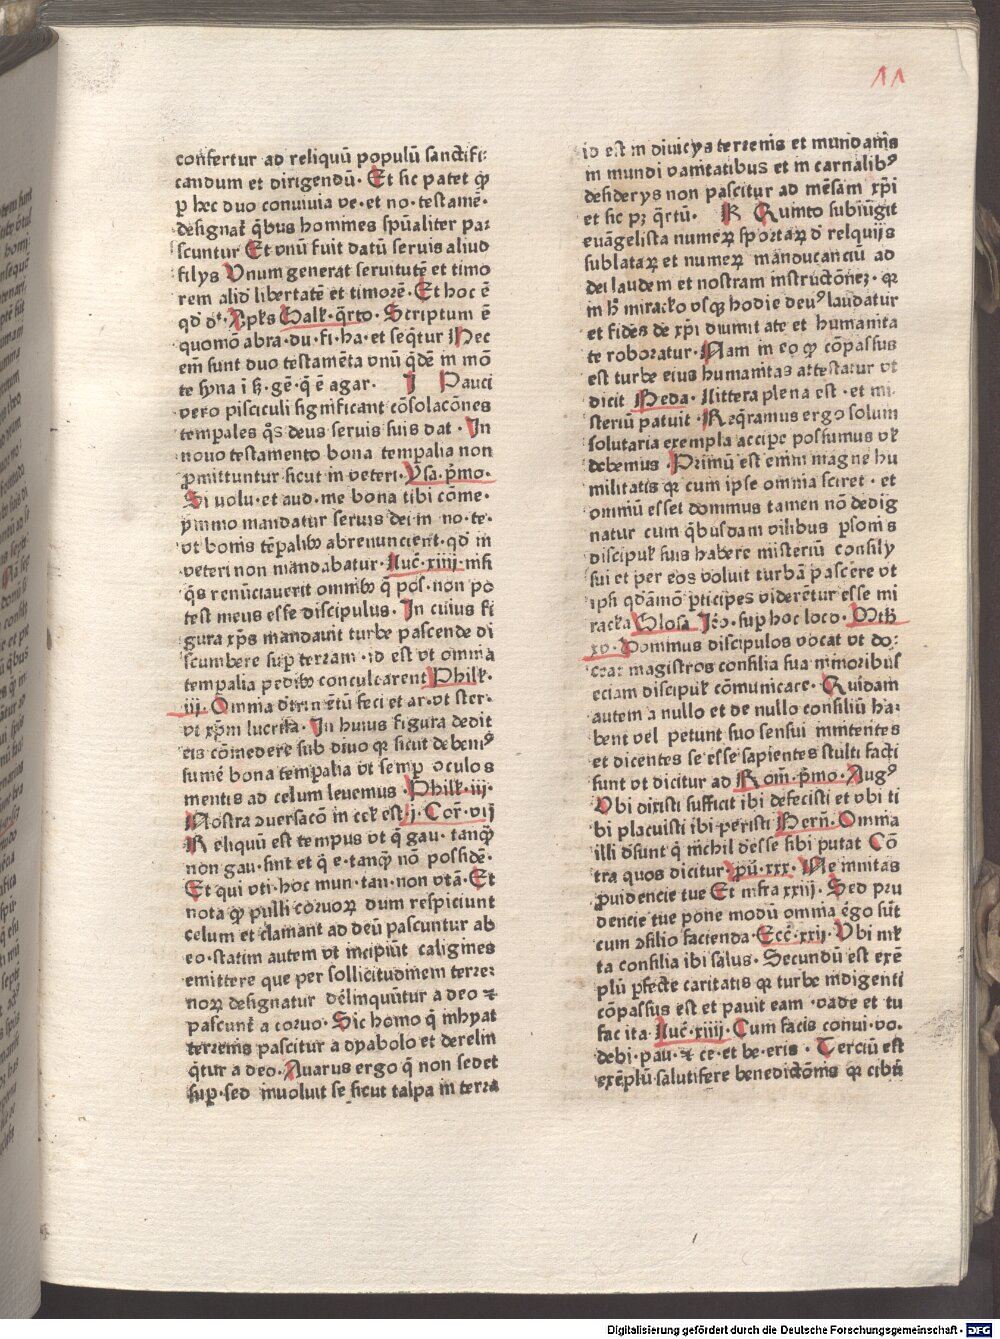 11
confertur ad reliquū populū sanctifi:
candum et dirigendū. Et sic patet ꝙ
ꝑ hec duo conuiuia ve. et no. testamē.
designat̄ q̄bus homines spūaliter pas
scuntur Et vnū fuit datū seruis aliud
filijs Unum generat seruitutē et timo
rem aliō libertatē et timorē. Et hoc ē
qd̄ dt̄. Apl̄s Galł. q̄rto. Scriptum ē
quomō abra. du. fi. ha. et seq̄tur Hec
em̄ sunt duo testamēta vnū q̄dē in mō
te syna ī ß. gē. q̄ ē agar. Pauci
vero pisciculi significant cōsolacōnes
temꝑales q̄s deus seruis suis dat. In
nouo testamento bona temꝑalia non
ꝓmittuntur sicut in veteri. Ysa. p̄mo.
Si uolu. et aud. me bona tibi cōme.
ymmo mandatur seruis dei in no. te.
vt bonis tēꝑalibꝫ abrenuncient. qd̄ in
veteri non mandabatur. Luc̄. xiiij. nisi
q̄s renūciauerit omnibꝫ q̄ pos. non po
test meus esse discipulus. In cuius fi
gura xp̄s mandauit turbe pascende di
scumbere suꝑ terram. id est vt omnia
temꝑalia pedibꝫ conculcarent Philł.
iij. Omnia detrimētū feci et ar. vt ster.
vt xp̄m lucrifa. In huius figura dedit
eis cōmedere sub diuo qꝛ sicut debemꝰ
sumē bona temꝑalia vt semꝑ oculos
mentis ad celum leuemus. Philł. iij.
Nostra ↄuersacō in celł est. j. Cor̄. vij
Reliquū est tempus vt q̄ gau. tanqꝫ
non gau. sint et q̄ e. tanqꝫ nō possidē.
Et qui vti. hoc mun. tan. non vtā. Et
nota ꝙ pulli coruoꝝ dum respiciunt
celum et clamant ad deū pascuntur ab
eo. statim autem vt incipiūt caligines
emittere que per sollicitudinem terre:
noꝝ designatur delinquūtur a deo ⁊
pascunt̄ a coruo. Sic homo q̄ inhyat
terrenis pascitur a dyabolo et derelin
q̄tur a deo. Auarus ergo q̄ non sedet
suꝑ. sed inuoluit se sicut talpa in terra
id est in diuicijs terrenis et mundanis
in mundi vanitatibus et in carnalibꝰ
desiderijs non pascitur ad mēsam xp̄i
et sic pꝫ q̄rtū. K Quinto subiūgit
euāgelista numeꝝ sportaꝝ d̄ relquijs
sublataꝝ et numeꝝ manducanciū ad
dei laudem et nostram instructōneꝫ. qꝛ
in hͦ miraclo vsqꝫ hodie deuꝰ laudatur
et fides de xp̄i diuinitate et humanita
te roboratur. Nam in eo ꝙ cōpassus
est turbe eius humanitas attestatur vt
dicit Beda. Littera plena est. et mi
steriū patuit. Req̄ramus ergo solum
solutaria exempla accipe possumus vł
debemus. Primū est enim magne hu
militatis qꝛ cum ipse omnia sciret. et
omniū esset dominus tamen nō dedig
natur cum q̄busdam vilibus ꝑsonis
discipuł suis habere misteriū consilij
sui et per eos voluit turbā pascere vt
ipsi qd̄āmō ꝑticipes viderētur esse mi
racła Glosa Jer̄o. suꝑ hoc loco. Mth̄.
xv. Dominus discipulos vocat vt do:
ceat magistros consilia sua minoribus
eciam discipuł cōmunicare. Quidam
autem a nullo et de nullo consiliū ha:
bent vel petunt suo sensui innitentes
et dicentes se esse sapientes stulti facti
sunt vt dicitur ad Rom̄. p̄mo. Augꝰ
Ubi dixisti sufficit ibi defecisti et vbi ti
bi placuisti ibi peristi Bern̄. Omnia
illi dsunt q̄ nichil deesse sibi putat Cō
tra quos dicitur. pū. xxx. Ne innitas
ꝓuidencie tue Et infra xxiij. Sed pru
dencie tue pone modū omnia ergo sūt
cum ↄsilio facienda. Ecc̄. xxij. Ubi mł
ta consilia ibi salus. Secundū est exē
plū ꝑfecte caritatis qꝛ turbe indigenti
cōpassus est et pauit eam. vade et tu
fac ita. Luc̄. xiiij. Cum facis conui. vo.
debi. pau. ⁊ ce. et be. eris. Terciū est
exēplū salutifere benedictōnis qꝛ cibū
Digitalisierung gefördert durch die Deutsche Forschungsgemeinschaft - DFG